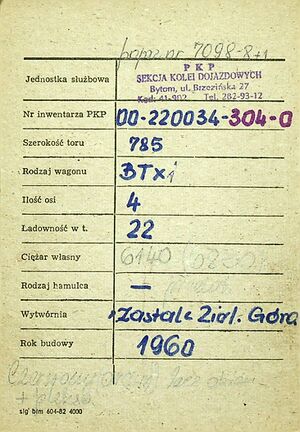 poprz nr 7098-8+1
PKP
SEKCJA KOLEI DOJAZDOWYCH
Bytom, ul. Brzezińska 27
Kod: 41-902 Tel. 282-93-12
Jednostka służbowa
Nr inwentarza PKP 00-220034-304-0
Szerokość toru 785
Rodzaj wagonu BTxi
Ilość osi 4
Ładowność w t. 22
Ciężar własny 6140
Rodzaj hamulca —
Wytwórnia Zastal Ziel. Góra
Rok budowy 1960
sig bim 604-82 4000